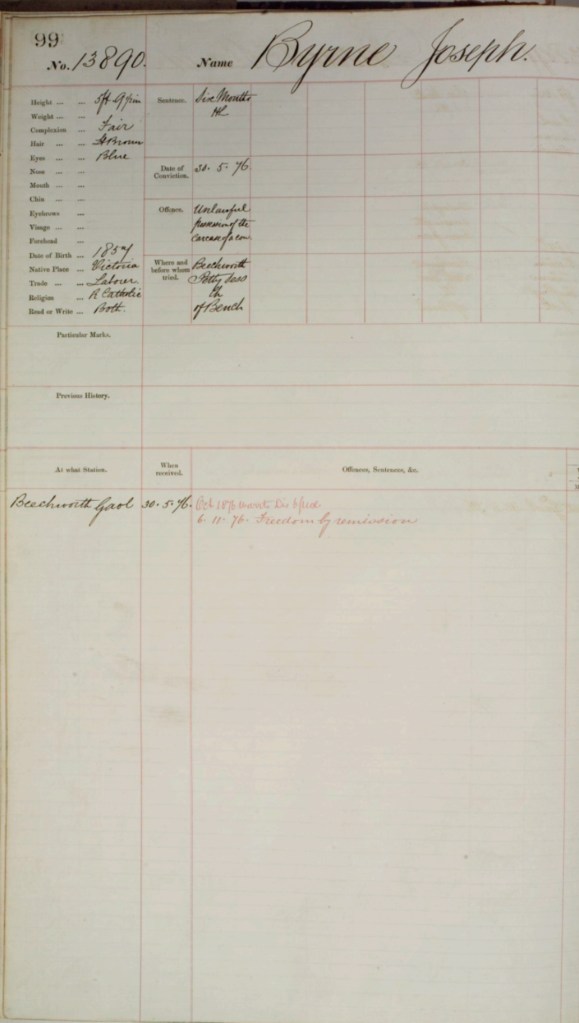 99
No. 13890. Name Byrne Joseph.
Height 5ft 9
Weight
Complexion Fair
Hair Brown
Eyes Blue
Nose
Mouth
Chin
Eyebrows
Visage
Forehead
Date of Birth 1857
Native Place Victoria
Trade Laborer
Religion R Catholic
Read or Write Both
Sentence. Six Months
HL
Date of Conviction. 30. 5. 76.
Offence. Unlawful
Possession of the
carcase of a cow
Where and before whom tried. Beechworth
Petty Sess
Ch
of Bench
Particular Marks.
Previous History.
At what Station.
When received.
Offences, Sentences, &c.
Beechworth Gaol 30. 5. 76. Oct 1876
6. 11. 76. Freedom by remission